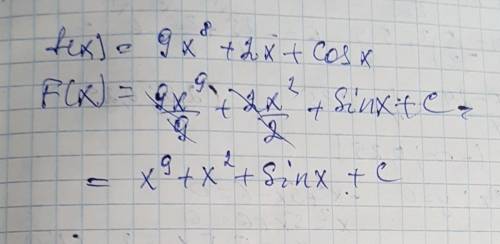 f(x) = 9x⁸ + 2x + cosx
F(x) = 9x⁹/9 + 2x²/2 + sinx + c =
= x⁹ + x² + sinx + c